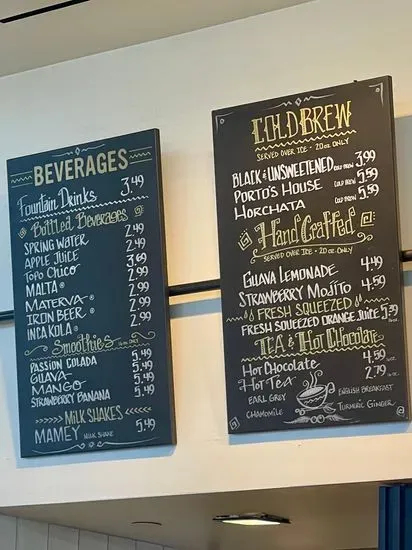 BEVERAGES
Fountain Drinks 3.49
Bottled Beverages
SPRING WATER 2.49
APPLE JUICE 2.49
TOPO CHICO 3.69
MALTA® 2.49
MATERVA® 2.49
IRON BEER® 2.49
INCA KOLA® 2.49
Smoothies
PASSION COLADA 5.49
GUAVA 5.49
MANGO 5.49
STRAWBERRY BANANA 5.49
MILK SHAKES
MAMEY MILK SHAKE 5.49
COLD BREW
SERVED OVER ICE - 20oz ONLY
BLACK & UNSWEETENED COLD BREW 3.99
PORTO'S HOUSE COLD BREW 5.59
HORCHATA COLD BREW 5.59
Hand Crafted
SERVED OVER ICE - 20oz ONLY
GUAVA LEMONADE 4.49
STRAWBERRY MOJITO 4.49
FRESH SQUEEZED
FRESH SQUEEZED ORANGE JUICE 5.39
TEA & Hot Chocolate
HOT CHOCOLATE 4.59
HOT TEA 2.79
EARL GREY
ENGLISH BREAKFAST
CHAMOMILE
TURMERIC GINGER